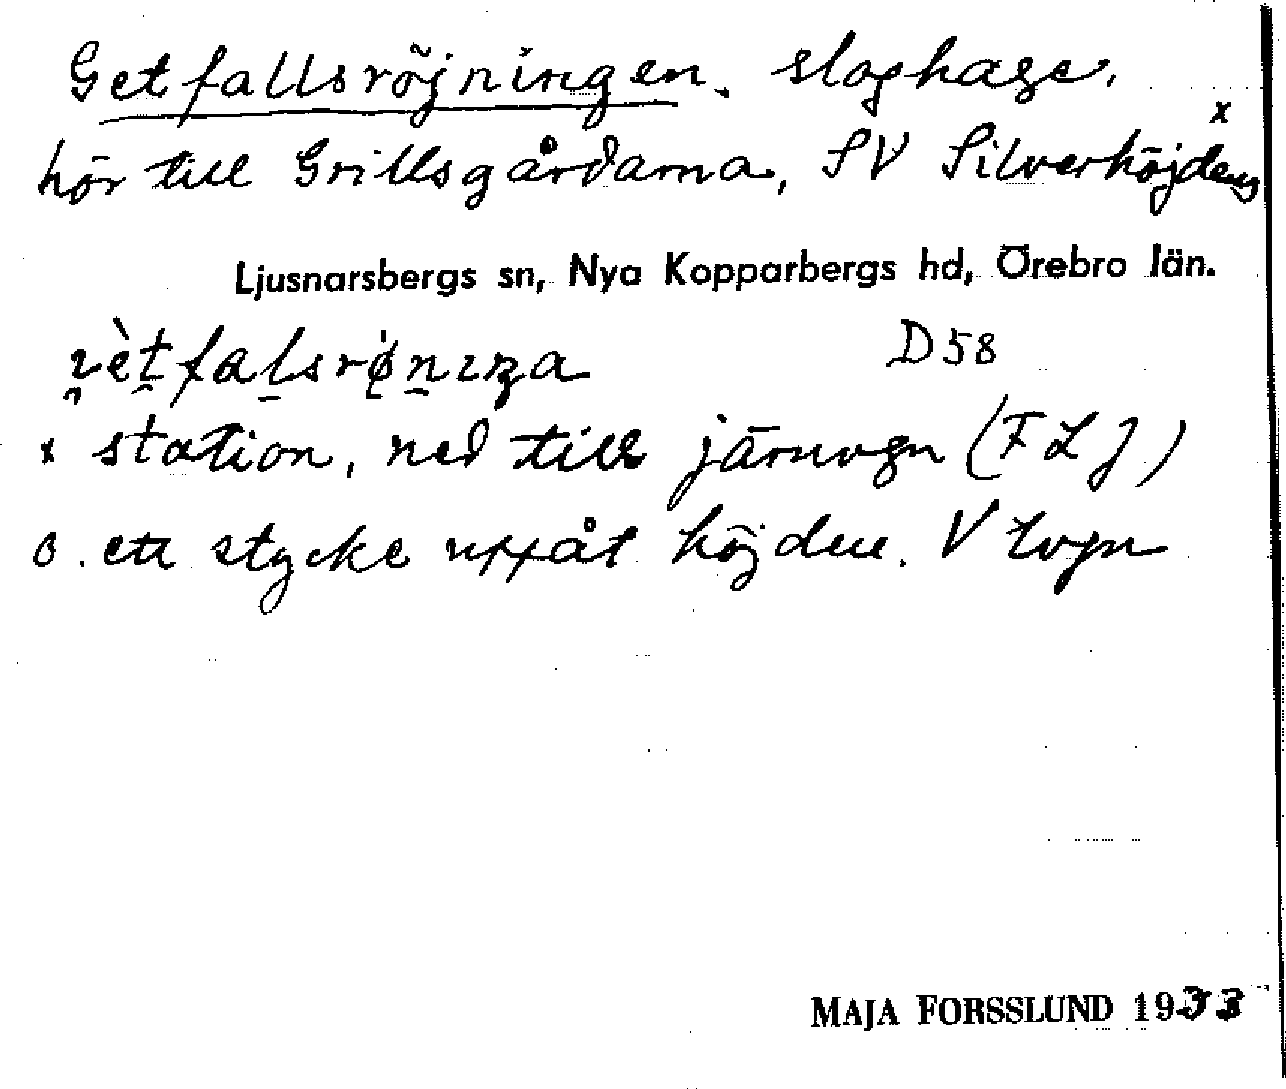 Getfallsröjningen. sloghage.
hör till Grillsgårdarna, SV Silverhöjdens x
Ljusnarsbergs sn, Nya Kopparbergs hd, Örebro län.
D 58
x station, ned till järnvgn (FLJ)
o. ett stycke uppåt höjden. V tvgn
MAJA FORSSLUND 1933